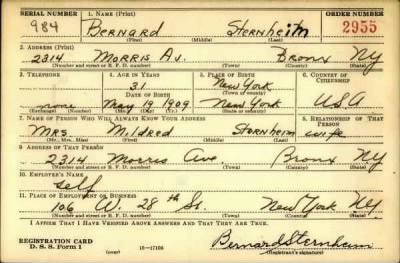 SERIAL NUMBER 1. NAME (Print) ORDER NUMBER
984 BERNARD STERNHEIM 2955
(First) (Middle) (Last)
2. ADDRESS (Print)
2314 MORRIS AV. BRONX NY
(Number and street or R. F. D. number) (Town) (County) (State)
3. TELEPHONE 4. AGE IN YEARS 5. PLACE OF BIRTH 6. COUNTRY OF CITIZENSHIP
31 New York
DATE OF BIRTH (Town or county)
none May 19 1909 New York USA
(Exchange) (No.) (Mo.) (Day) (Yr.) (State or country)
7. NAME OF PERSON WHO WILL ALWAYS KNOW YOUR ADDRESS 8. RELATIONSHIP OF THAT PERSON
Mrs Mildred Sternheim wife
(Mr., Mrs., Miss) (First) (Middle) (Last)
9. ADDRESS OF THAT PERSON
2314 Morris Ave Bronx NY
(Number and street or R. F. D. number) (Town) (County) (State)
10. EMPLOYER'S NAME
self
11. PLACE OF EMPLOYMENT OR BUSINESS
106 W. 28th St. New York NY
(Number and street or R. F. D. number) (Town) (County) (State)
I AFFIRM THAT I HAVE VERIFIED ABOVE ANSWERS AND THAT THEY ARE TRUE.
REGISTRATION CARD
D. S. S. Form 1 (over) 16-17105 Bernard Sternheim
(Registrant's signature)